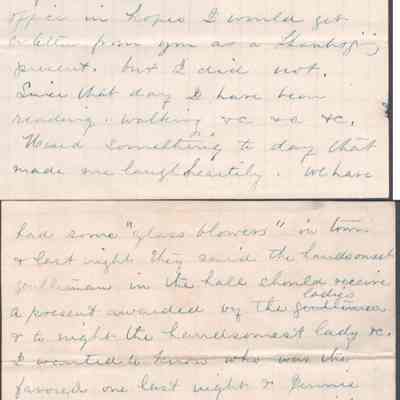 office in hopes I would get
a letter from you as a Thanksgiving
present. but I did not.
Since that day I have been
reading. walking &c &c &c.
Heard something to day that
made me laugh heartily. We have
had some "glass blowers" in town
& last night they said the handsomest
gentleman in the hall should receive
a present awarded by the gentlemen ladys
& to night the handsomest lady &c.
I wanted to know who was the
favored one last night & Jennie